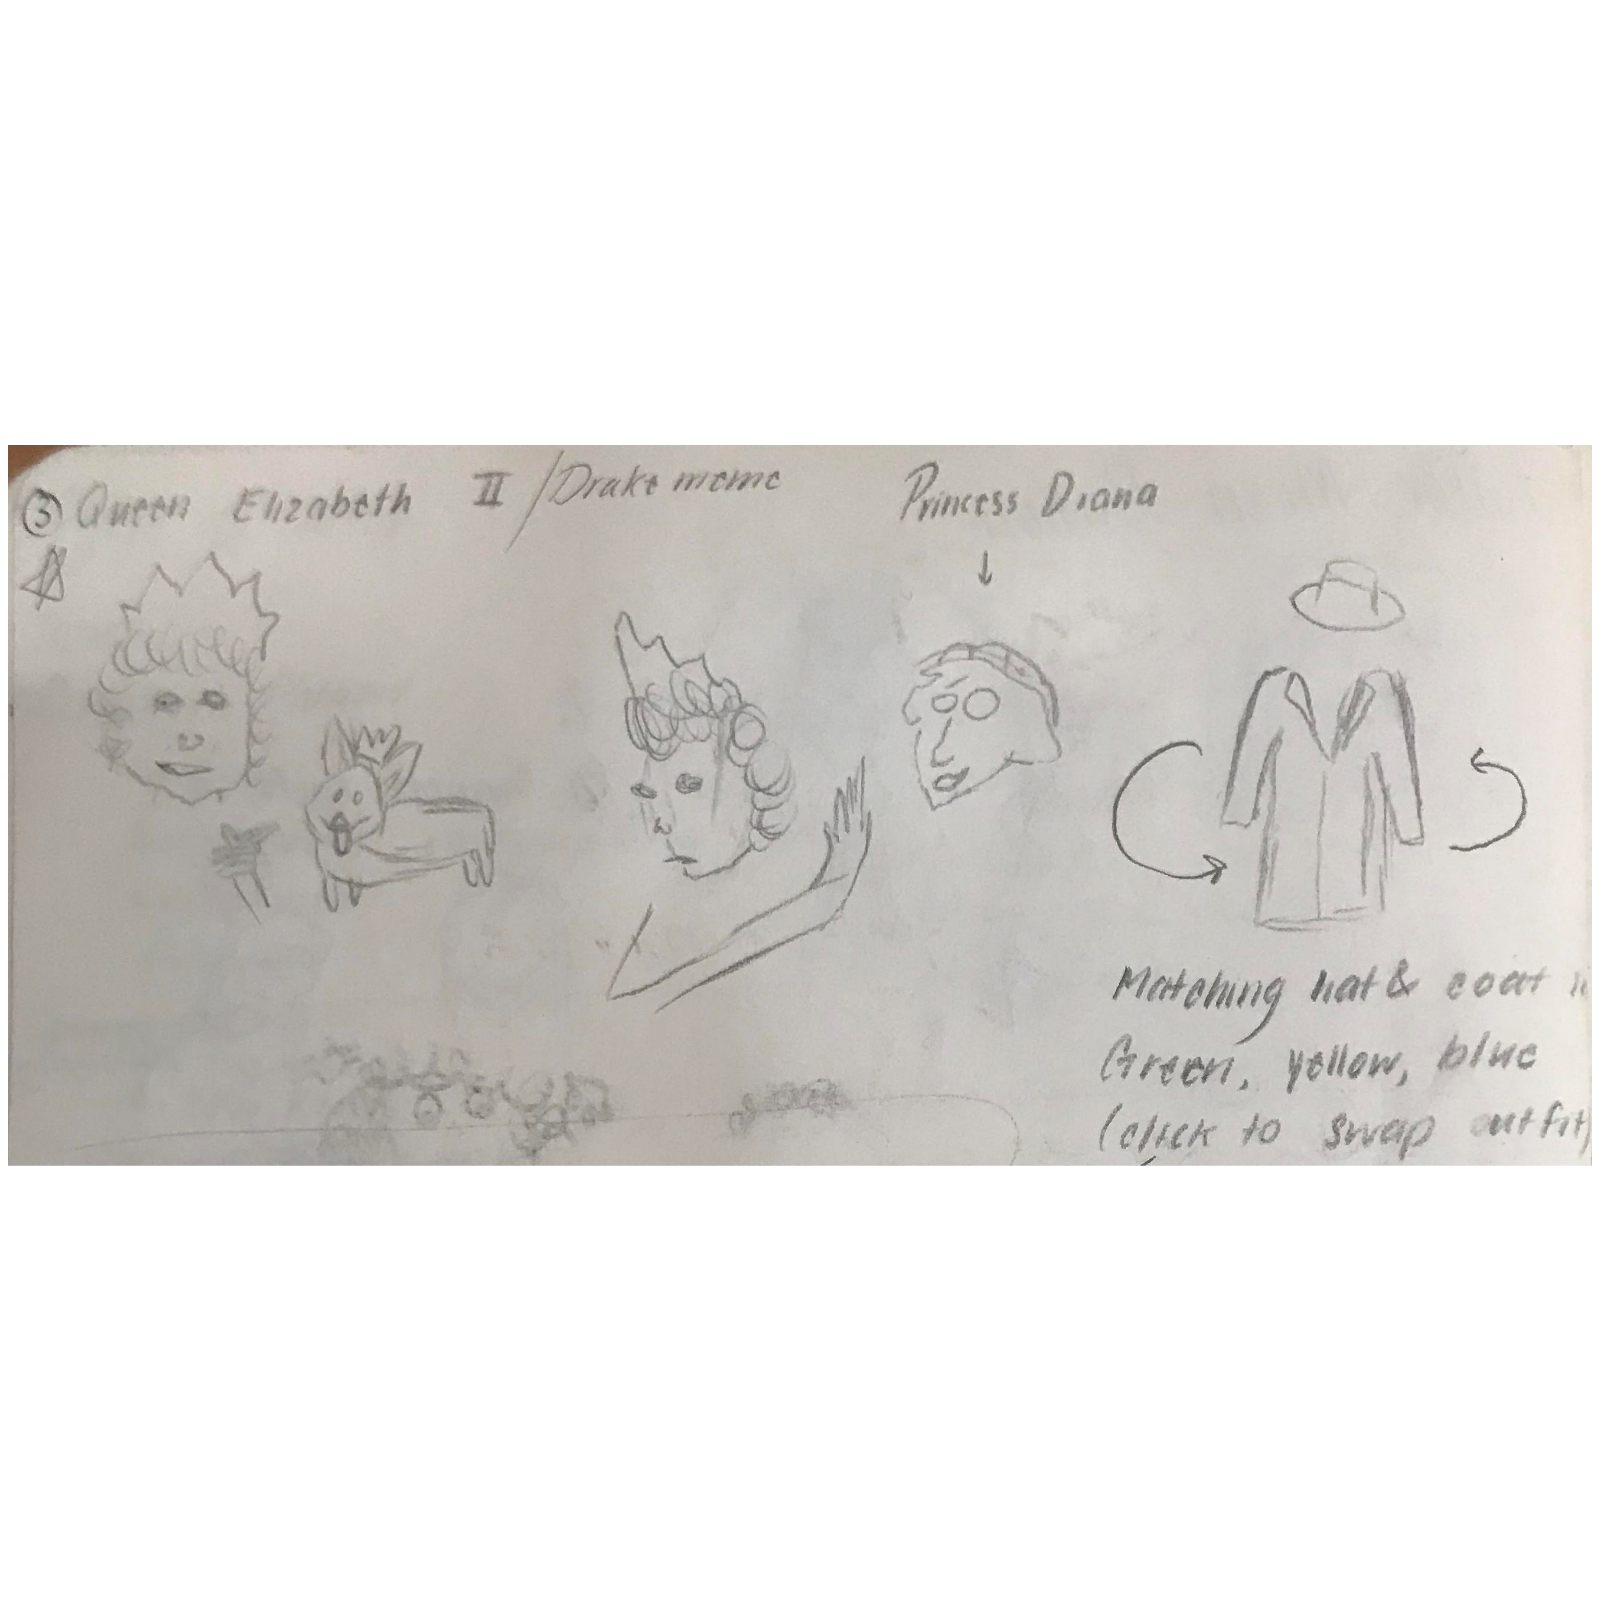 ③ Queen Elizabeth II / Drake meme
Princess Diana
Matching hat & coat
Green, yellow, blue
(click to swap outfit)